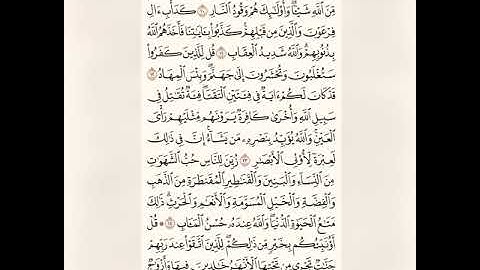 مِّنَ ٱللَّهِ شَيْـًٔا ۖ وَأُو۟لَـٰٓئِكَ هُمْ وَقُودُ ٱلنَّارِ ۝١٠ كَدَأْبِ ءَالِ
فِرْعَوْنَ وَٱلَّذِينَ مِن قَبْلِهِمْ ۚ كَذَّبُوا۟ بِـَٔايَـٰتِنَا فَأَخَذَهُمُ ٱللَّهُ
بِذُنُوبِهِمْ ۗ وَٱللَّهُ شَدِيدُ ٱلْعِقَابِ ۝١١ قُل لِّلَّذِينَ كَفَرُوا۟
سَتُغْلَبُونَ وَتُحْشَرُونَ إِلَىٰ جَهَنَّمَ ۚ وَبِئْسَ ٱلْمِهَادُ ۝١٢
قَدْ كَانَ لَكُمْ ءَايَةٌ فِى فِئَتَيْنِ ٱلْتَقَتَا ۖ فِئَةٌ تُقَـٰتِلُ فِى
سَبِيلِ ٱللَّهِ وَأُخْرَىٰ كَافِرَةٌ يَرَوْنَهُم مِّثْلَيْهِمْ رَأْىَ
ٱلْعَيْنِ ۚ وَٱللَّهُ يُؤَيِّدُ بِنَصْرِهِۦ مَن يَشَآءُ ۗ إِنَّ فِى ذَٰلِكَ
لَعِبْرَةً لِّأُو۟لِى ٱلْأَبْصَـٰرِ ۝١٣ زُيِّنَ لِلنَّاسِ حُبُّ ٱلشَّهَوَٰتِ
مِنَ ٱلنِّسَآءِ وَٱلْبَنِينَ وَٱلْقَنَـٰطِيرِ ٱلْمُقَنطَرَةِ مِنَ ٱلذَّهَبِ
وَٱلْفِضَّةِ وَٱلْخَيْلِ ٱلْمُسَوَّمَةِ وَٱلْأَنْعَـٰمِ وَٱلْحَرْثِ ۗ ذَٰلِكَ
مَتَـٰعُ ٱلْحَيَوٰةِ ٱلدُّنْيَا ۖ وَٱللَّهُ عِندَهُۥ حُسْنُ ٱلْمَـَٔابِ ۝١٤ ۞ قُلْ
أَؤُنَبِّئُكُم بِخَيْرٍ مِّن ذَٰلِكُمْ ۚ لِلَّذِينَ ٱتَّقَوْا۟ عِندَ رَبِّهِمْ
جَنَّـٰتٌ تَجْرِى مِن تَحْتِهَا ٱلْأَنْهَـٰرُ خَـٰلِدِينَ فِيهَا وَأَزْوَٰجٌ